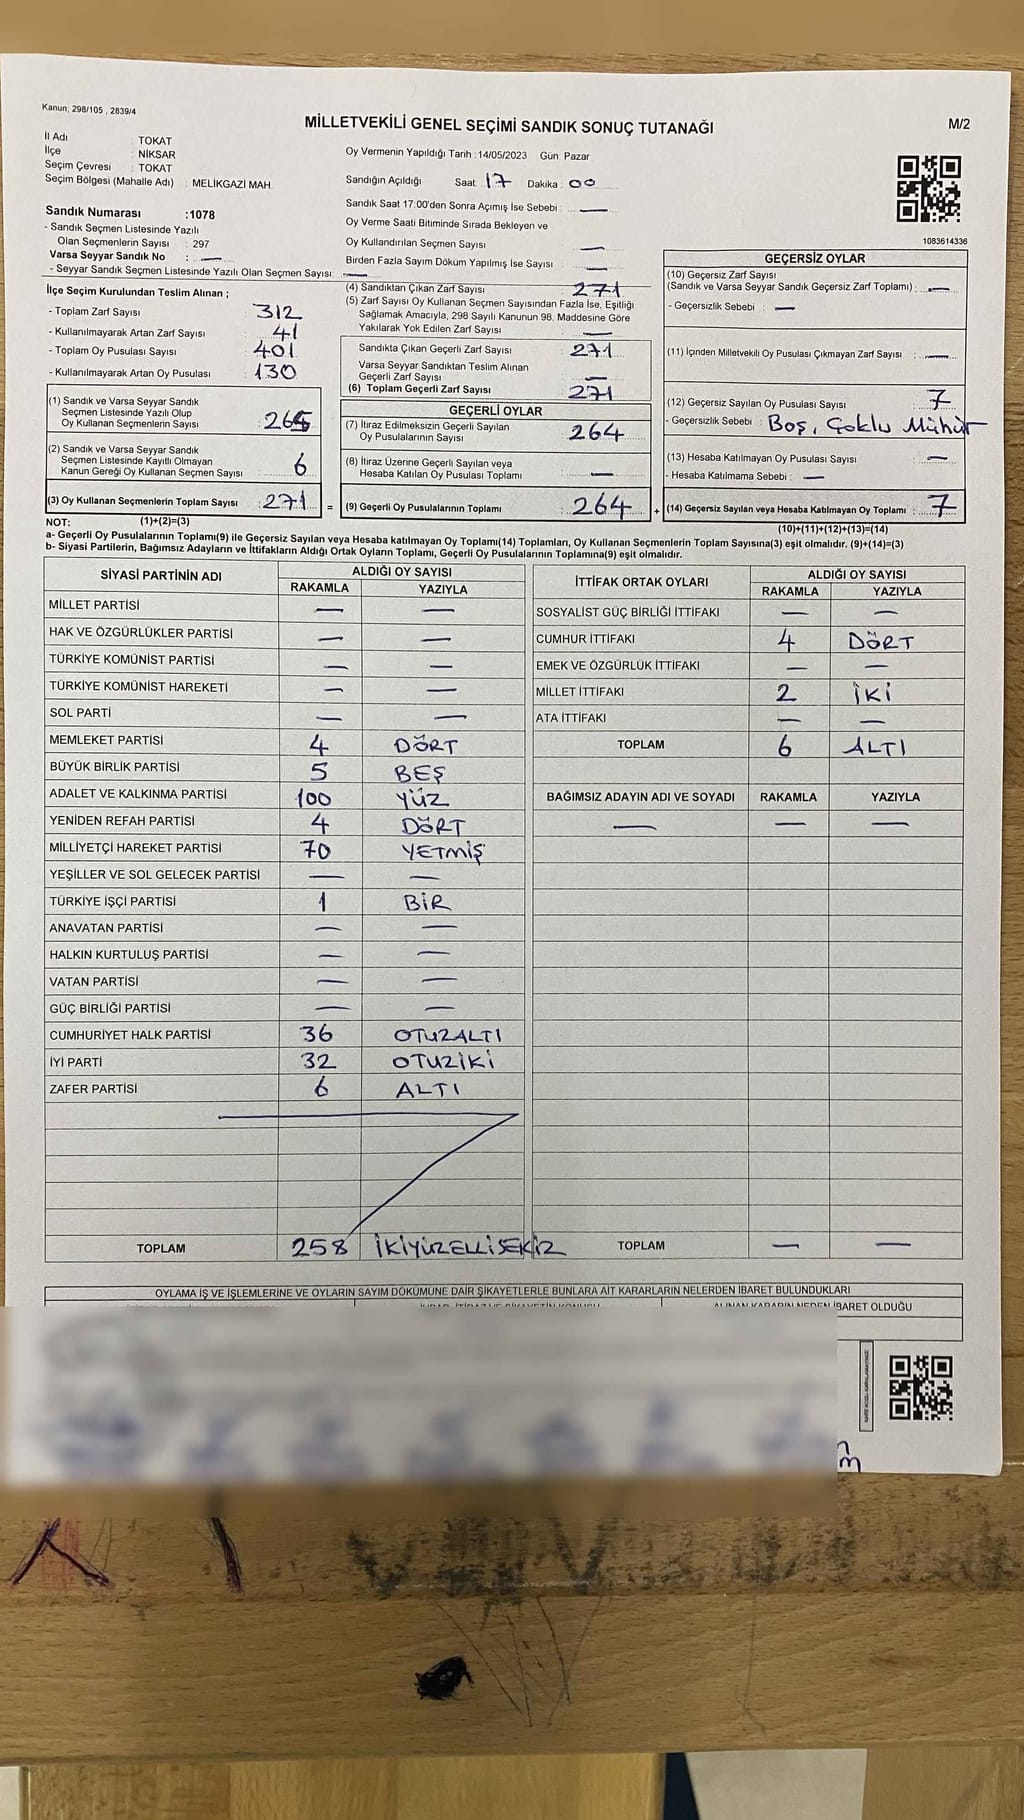 Kanun; 298/105 , 2839/4
MİLLETVEKİLİ GENEL SEÇİMİ SANDIK SONUÇ TUTANAĞI
M/2
İl Adı : TOKAT
İlçe : NİKSAR
Seçim Çevresi : TOKAT
Seçim Bölgesi (Mahalle Adı) : MELİKGAZİ MAH.
Oy Vermenin Yapıldığı Tarih :14/05/2023 Gün: Pazar
Sandığın Açıldığı Saat: 17 Dakika: 00
Sandık Saat 17:00'den Sonra Açımış İse Sebebi : —
Oy Verme Saati Bitiminde Sırada Bekleyen ve
Oy Kullandırılan Seçmen Sayısı —
Birden Fazla Sayım Döküm Yapılmış İse Sayısı —
1083614336
Sandık Numarası :1078
- Sandık Seçmen Listesinde Yazılı
Olan Seçmenlerin Sayısı : 297
Varsa Seyyar Sandık No : —
- Seyyar Sandık Seçmen Listesinde Yazılı Olan Seçmen Sayısı: —
İlçe Seçim Kurulundan Teslim Alınan ;
- Toplam Zarf Sayısı : 312
- Kullanılmayarak Artan Zarf Sayısı : 41
- Toplam Oy Pusulası Sayısı : 401
- Kullanılmayarak Artan Oy Pusulası : 130
(1) Sandık ve Varsa Seyyar Sandık
Seçmen Listesinde Yazılı Olup
Oy Kullanan Seçmenlerin Sayısı : 265
(2) Sandık ve Varsa Seyyar Sandık
Seçmen Listesinde Kayıtlı Olmayan
Kanun Gereği Oy Kullanan Seçmen Sayısı : 6
(3) Oy Kullanan Seçmenlerin Toplam Sayısı : 271 =
(4) Sandıktan Çıkan Zarf Sayısı : 271
(5) Zarf Sayısı Oy Kullanan Seçmen Sayısından Fazla İse, Eşitliği
Sağlamak Amacıyla, 298 Sayılı Kanunun 98. Maddesine Göre
Yakılarak Yok Edilen Zarf Sayısı : —
Sandıkta Çıkan Geçerli Zarf Sayısı : 271
Varsa Seyyar Sandıktan Teslim Alınan
Geçerli Zarf Sayısı : —
(6) Toplam Geçerli Zarf Sayısı : 271
GEÇERLİ OYLAR
(7) İtiraz Edilmeksizin Geçerli Sayılan
Oy Pusulalarının Sayısı : 264
(8) İtiraz Üzerine Geçerli Sayılan veya
Hesaba Katılan Oy Pusulası Toplamı : —
(9) Geçerli Oy Pusulalarının Toplamı : 264 +
GEÇERSİZ OYLAR
(10) Geçersiz Zarf Sayısı
(Sandık ve Varsa Seyyar Sandık Geçersiz Zarf Toplamı) : —
- Geçersizlik Sebebi : —
(11) İçinden Milletvekili Oy Pusulası Çıkmayan Zarf Sayısı : —
(12) Geçersiz Sayılan Oy Pusulası Sayısı : 7
- Geçersizlik Sebebi : Boş, Çoklu Mühür
(13) Hesaba Katılmayan Oy Pusulası Sayısı : —
- Hesaba Katılmama Sebebi : —
(14) Geçersiz Sayılan veya Hesaba Katılmayan Oy Toplamı : 7
NOT: (1)+(2)=(3)
(10)+(11)+(12)+(13)=(14)
a- Geçerli Oy Pusulalarının Toplamı(9) ile Geçersiz Sayılan veya Hesaba katılmayan Oy Toplamı(14) Toplamları, Oy Kullanan Seçmenlerin Toplam Sayısına(3) eşit olmalıdır. (9)+(14)=(3)
b- Siyasi Partilerin, Bağımsız Adayların ve İttifakların Aldığı Ortak Oyların Toplamı, Geçerli Oy Pusulalarının Toplamına(9) eşit olmalıdır.
SİYASİ PARTİNİN ADI ALDIĞI OY SAYISI
RAKAMLA YAZIYLA
MİLLET PARTİSİ — —
HAK VE ÖZGÜRLÜKLER PARTİSİ — —
TÜRKİYE KOMÜNİST PARTİSİ — —
TÜRKİYE KOMÜNİST HAREKETİ — —
SOL PARTİ — —
MEMLEKET PARTİSİ 4 DÖRT
BÜYÜK BİRLİK PARTİSİ 5 BEŞ
ADALET VE KALKINMA PARTİSİ 100 YÜZ
YENİDEN REFAH PARTİSİ 4 DÖRT
MİLLİYETÇİ HAREKET PARTİSİ 70 YETMİŞ
YEŞİLLER VE SOL GELECEK PARTİSİ — —
TÜRKİYE İŞÇİ PARTİSİ 1 BİR
ANAVATAN PARTİSİ — —
HALKIN KURTULUŞ PARTİSİ — —
VATAN PARTİSİ — —
GÜÇ BİRLİĞİ PARTİSİ — —
CUMHURİYET HALK PARTİSİ 36 OTUZALTI
İYİ PARTİ 32 OTUZİKİ
ZAFER PARTİSİ 6 ALTI
TOPLAM 258 İKİYÜZELLİSEKİZ
İTTİFAK ORTAK OYLARI ALDIĞI OY SAYISI
RAKAMLA YAZIYLA
SOSYALİST GÜÇ BİRLİĞİ İTTİFAKI — —
CUMHUR İTTİFAKI 4 DÖRT
EMEK VE ÖZGÜRLÜK İTTİFAKI — —
MİLLET İTTİFAKI 2 İKİ
ATA İTTİFAKI — —
TOPLAM 6 ALTI
BAĞIMSIZ ADAYIN ADI VE SOYADI RAKAMLA YAZIYLA
— — —
TOPLAM — —
OYLAMA İŞ VE İŞLEMLERİNE VE OYLARIN SAYIM DÖKÜMÜNE DAİR ŞİKAYETLERLE BUNLARA AİT KARARLARIN NELERDEN İBARET BULUNDUKLARI
ALINAN KARARIN NEDEN İBARET OLDUĞU